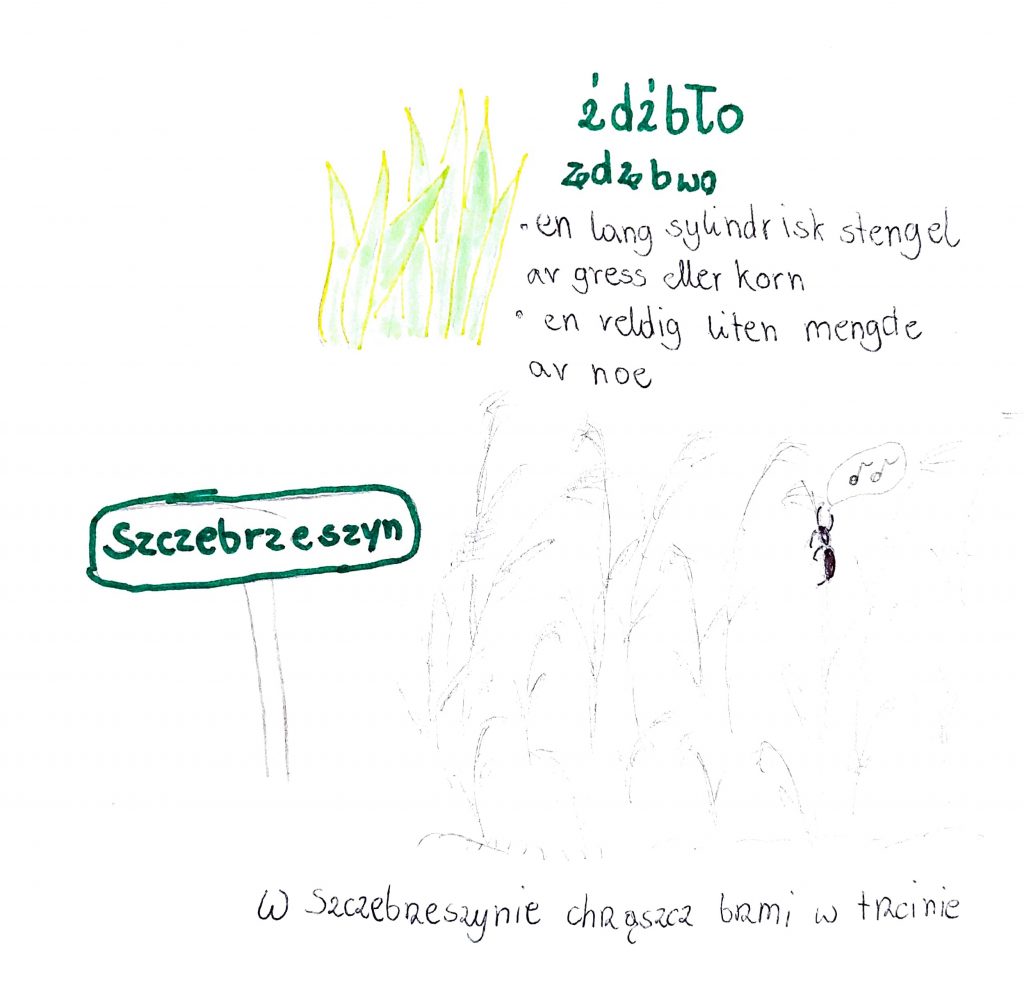 źdźbło
zędzębwo
• en lang sylindrisk stengel
av gress eller korn
• en veldig liten mengde
av noe
Szczebrzeszyn
W Szczebrzeszynie chrząszcz brzmi w trzcinie